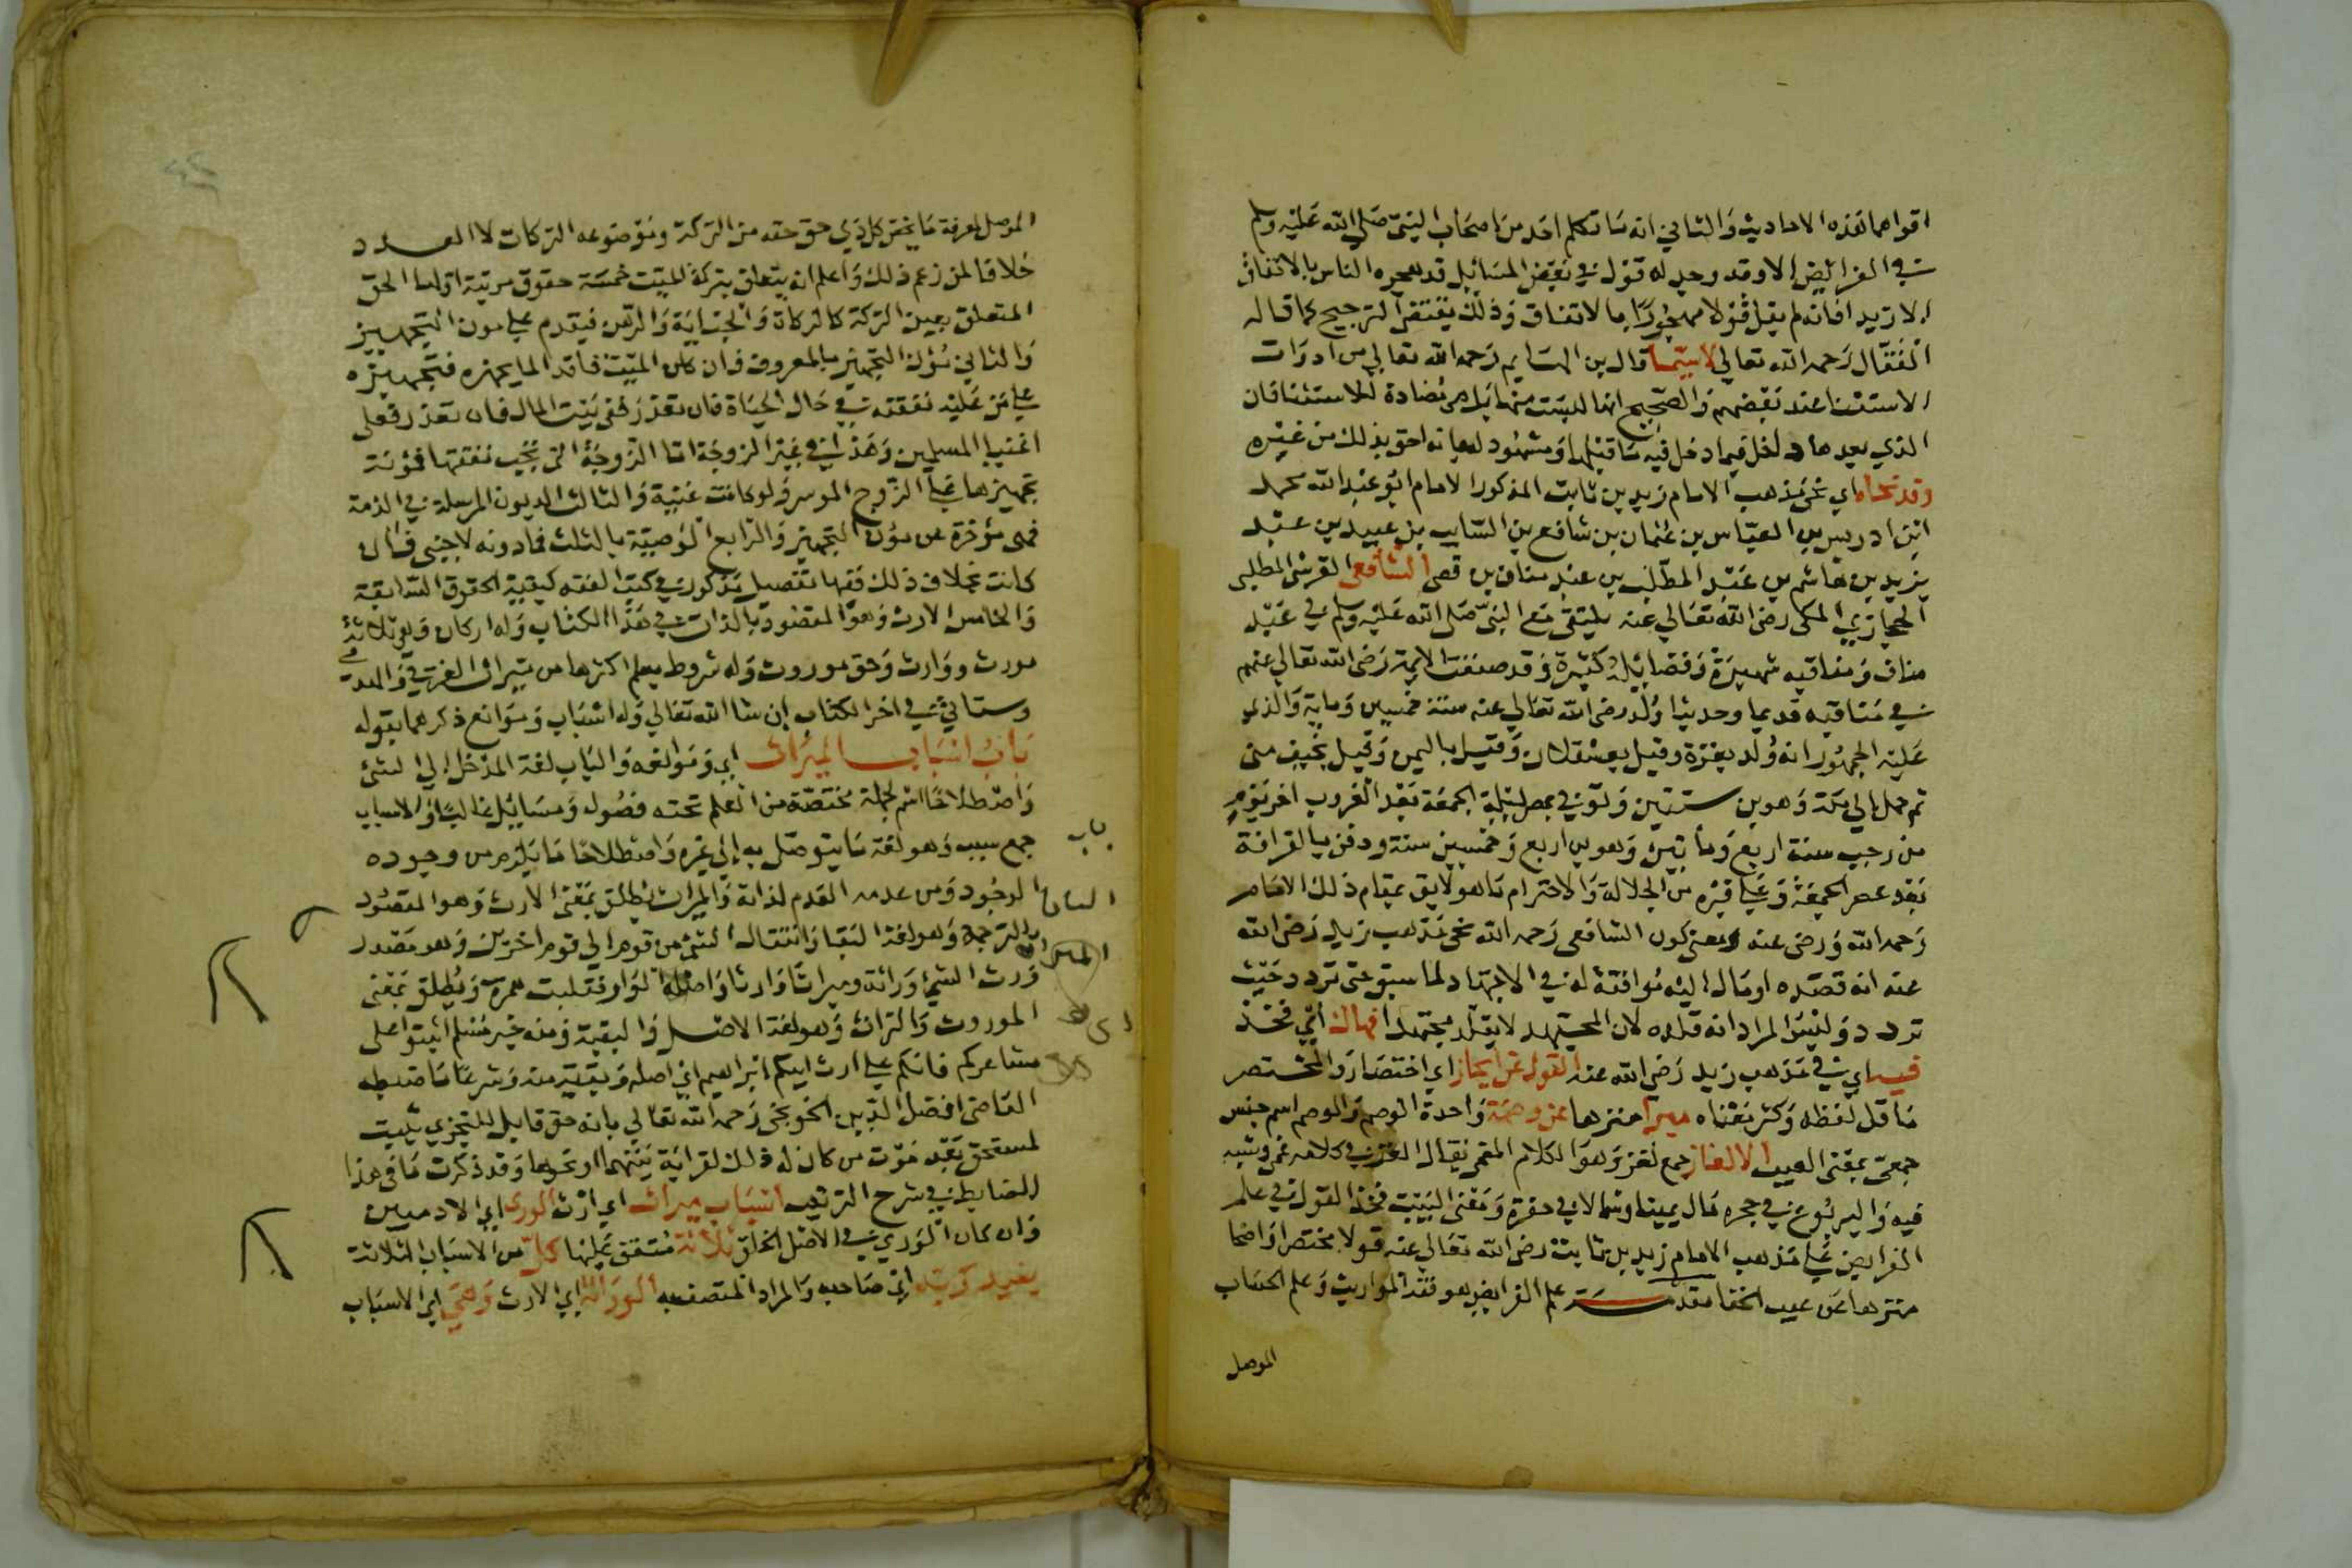 اقواها هذه الاحاديث والثاني انه ما تكلم احد من اصحاب النبي صلى الله عليه وسلم
في الفرائض الا وقد وجد له قول في بعض المسائل قد هجره الناس بالاتفاق
الا زيدا فانه لم يقل قولا مهجورا بالاتفاق وذلك يقتضي الترجيح كما قاله
القفال رحمه الله تعالى لاسيما قال بن الهايم رحمه الله تعالى من ادوات
الاستثناء عند بعضهم والصحيح انها ليست منها بل مضادة للاستثنا فان
الذي بعدها داخل فيما دخل فيه ما قبلها ومشهود له بانه احق بذلك من غيره
وقد نحاه اي نحى مذهب الامام زيد بن ثابت المذكور الامام ابو عبد الله محمد
ابن ادريس بن العباس بن عثمان بن شافع بن السايب بن عبيد بن عبد
يزيد بن هاشم بن عبد المطلب بن عبد مناف بن قصي الشافعي القرشي المطلبي
الحجازي المكي رضي الله تعالى عنه يلتقي مع النبي صلى الله عليه وسلم في عبد
مناف ومناقبه شهيرة وفضايله كثيرة وقد صنفت الايمة رضي الله تعالى عنهم
في مناقبه قديما وحديثا ولد رضي الله تعالى عنه سنة خمسين وماية والذي
عليه الجمهور انه ولد بغزة وقيل بعسقلان وقيل باليمن وقيل بخيف منى
ثم حمل الى مكة وهو بن سنتين وتوفي بمصر ليلة الجمعة بعد الغروب اخر يوم
من رجب سنة اربع ومأتين وهو بن اربع وخمسين سنة ودفن بالقرافة
بعد عصر الجمعة وعلى قبره من الجلالة والاحترام ما هو لايق بمقام ذلك الامام
رحمه الله ورضي عنه ومعنى كون الشافعي رحمه الله نحى مذهب زيد رضي الله
عنه انه قصده او مال اليه موافقة له في الاجتهاد لما سبق حتى تردد حيث
تردد وليس المراد انه قلده لان المجتهد لا يقلد مجتهدا فهاك اي فخذ
فيه اي في مذهب زيد رضي الله عنه القول عن ايجاز اي اختصار والمختصر
ما قل لفظه وكثر معناه مبرا منزها عن وصمة واحدة الوصم والوصم اسم جنس
جمعي بمعنى العيب الالغاز جمع لغز وهو الكلام المعمى يقال الغز في كلامه عمى وشبه
فيه واليربوع في جحره مال يمينا وشمالا في حفره ومعنى البيت فخذ القول في علم
الفرايض على مذهب الامام زيد بن ثابت رضي الله تعالى عنه قولا مختصرا واضحا
منزها عن عيب الخفا مقدمة علم الفرايض هو فقه المواريث وعلم الحساب
الموصل
الموصل لمعرفة ما يخص كل ذي حق حقه من التركة وموضوعه التركات لا العدد
خلافا لمن زعم ذلك واعلم انه يتعلق بتركة الميت خمسة حقوق مرتبة اولها الحق
المتعلق بعين التركة كالزكاة والجناية والرهن فيقدم على مون التجهيز
والثاني مؤن التجهيز بالمعروف فان كان الميت فاقدا لما يجهزه فتجهيزه
على من عليه نفقته في حال الحياة فان تعذر ففي بيت المال فان تعذر فعلى
اغنيا المسلمين وهذا في غير الزوجة اما الزوجة التي تجب نفقتها فمؤنة
تجهيزها على الزوج الموسر ولو كانت غنية والثالث الديون المرسلة في الذمة
فهي مؤخرة عن مؤن التجهيز والرابع الوصية بالثلث فما دونه لاجنبي فان
كانت بخلاف ذلك ففيها تفصيل مذكور في كتب الفقه كبقية الحقوق السابقة
والخامس الارث وهو المقصود بالذات في هذا الكتاب وله اركان وهي ثلاثة
مورث ووارث وحق موروث وله شروط يعلم اكثرها من ميراث الغرقى والهدمى
وستاتي في اخر الكتاب ان شا الله تعالى وله اسباب وموانع ذكرهما بقوله
باب اسباب الميراث اي وموانعه والباب لغة المدخل الى الشئ
واصطلاحا اسم لجملة مختصة من العلم تحته فصول ومسائل غالبا والاسباب
جمع سبب وهو لغة ما يتوصل به الى غيره واصطلاحا ما يلزم من وجوده
الوجود ومن عدمه العدم لذاته والميراث يطلق بمعنى الارث وهو المقصود
بالترجمة وهو لغة البقا وانتقال الشئ من قوم الى قوم اخرين وهو مصدر
ورث الشئ وراثة وميراثا وارثا واصله الواو فقلبت همزة ويطلق بمعنى
الموروث والتراث وهو لغة الاصل والبقية ومنه خبر مسلم اثبتوا على
مشاعركم فانكم على ارث ابيكم ابراهيم اي اصله وبقية منه وشرعا ما ضبطه
القاضي افضل الدين الخونجي رحمه الله تعالى بانه حق قابل للتجزي يثبت
لمستحق بعد موت من كان له ذلك لقرابة بينهما او نحوها وقد ذكرت ما في هذا
الضابط في شرح الترتيب اسباب ميراث اي ارث الورى اي الادميين
وان كان الورى في الاصل الخلق ثلاثة متفق عليها كل من الاسباب الثلاثة
يفيد ربه اي صاحبه والمراد المتصف به الوراثة اي الارث وهي اي الاسباب
باب